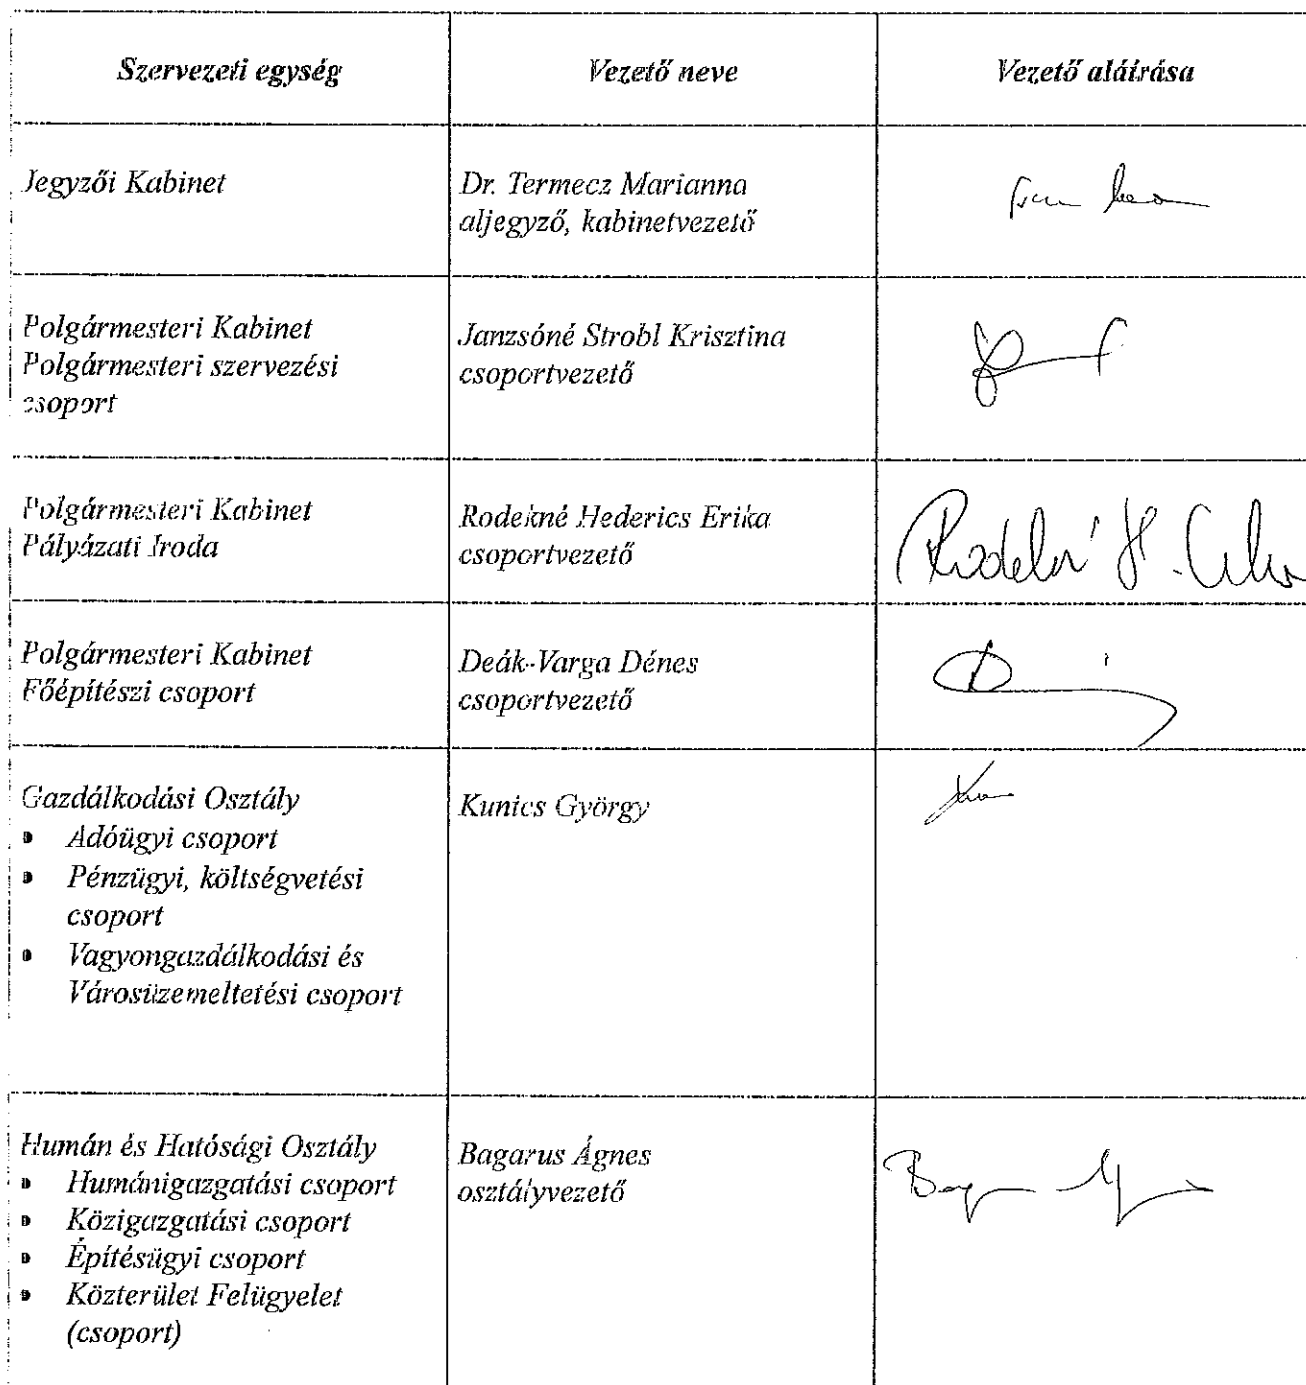 Szervezeti egység
Vezető neve
Vezető aláírása
Jegyzői Kabinet
Dr. Termecz Marianna
aljegyző, kabinetvezető
Polgármesteri Kabinet
Polgármesteri szervezési
csoport
Janzsóné Strobl Krisztina
csoportvezető
Polgármesteri Kabinet
Pályázati Iroda
Rodekné Hederics Erika
csoportvezető
Polgármesteri Kabinet
Főépítészi csoport
Deák-Varga Dénes
csoportvezető
Gazdálkodási Osztály
• Adóügyi csoport
• Pénzügyi, költségvetési
csoport
• Vagyongazdálkodási és
Városüzemeltetési csoport
Kunics György
Humán és Hatósági Osztály
• Humánigazgatási csoport
• Közigazgatási csoport
• Építésügyi csoport
• Közterület Felügyelet
(csoport)
Bagarus Ágnes
osztályvezető